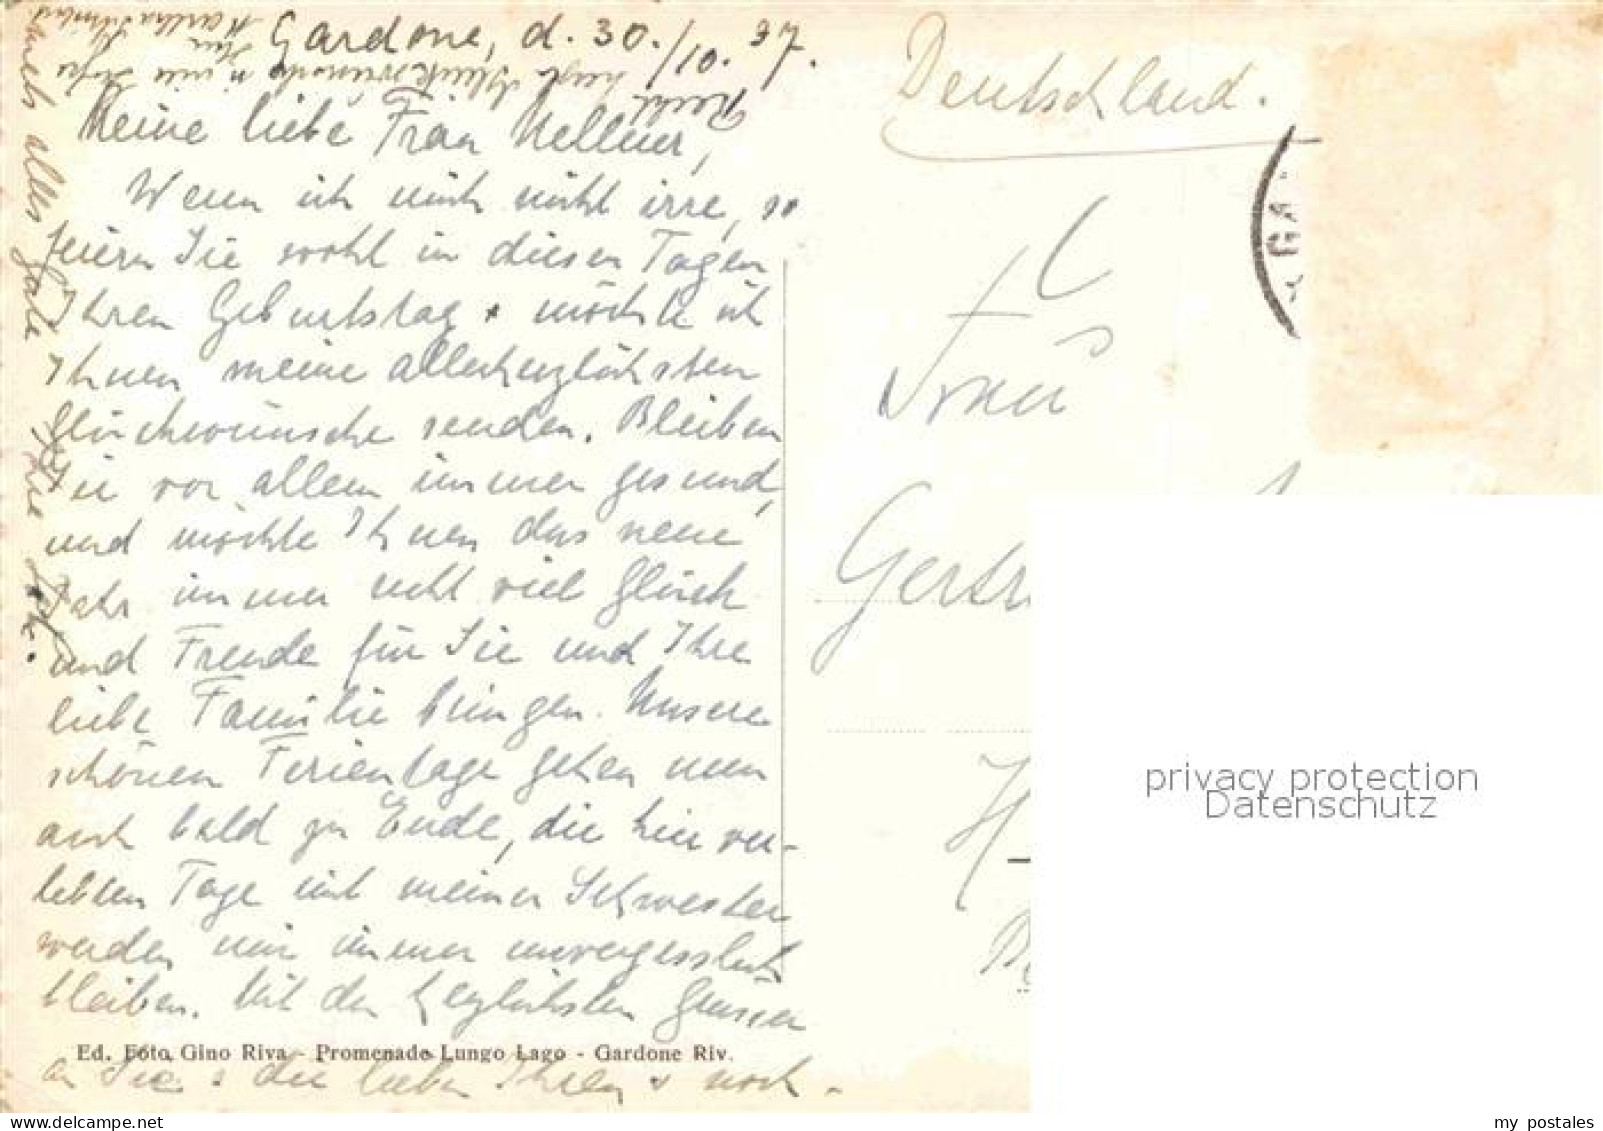 Gardone, d. 30./10. 37.
Meine liebe Frau Kellner,
Wenn ich mich nicht irre, so
feiern Sie wohl in diesen Tagen
Ihren Geburtstag + möchte ich
Ihnen meine allerherzlichsten
Glückwünsche senden. Bleiben
Sie vor allem immer gesund,
und möchte Ihnen das neue
Jahr immer recht viel Glück
und Freude für Sie und Ihre
liebe Familie bringen. Unsere
schönen Ferientage gehen nun
auch bald zu Ende, die hier ver-
lebten Tage mit meiner Schwester
werden mir immer unvergesslich
bleiben. Mit den herzlichsten Grüssen
an Sie + die lieben Ihren + noch-
mals alles Gute Ihre
Recht herzl. Glückwünsche + viele Grüße
Ed. Foto Gino Riva - Promenade Lungo Lago - Gardone Riv.
Deutschland.
Frau
Gertr
privacy protection
Datenschutz
my postales